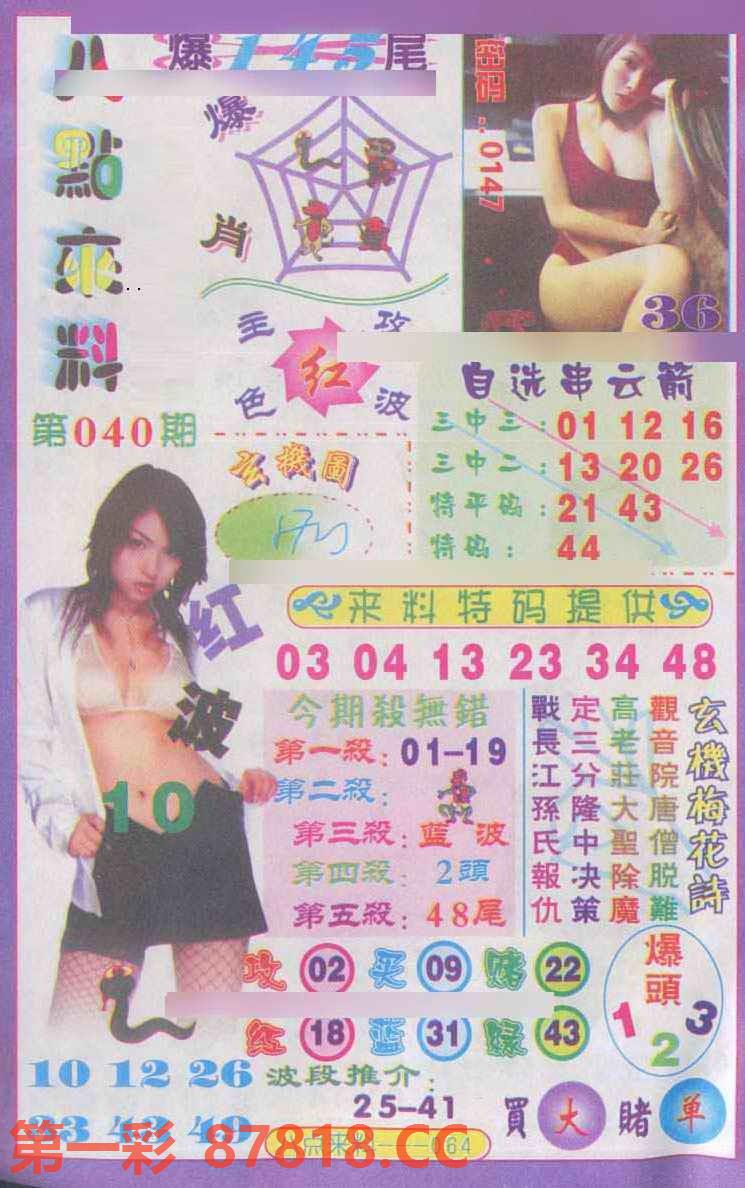 八點來料
爆145尾
爆肖
主攻
红
色波
0147
36
第040期
玄機圖
自选串云箭
三中三：01 12 16
三中二：13 20 26
特平码：21 43
特码：44
来料特码提供
03 04 13 23 34 48
红波
10
今期殺無錯
第一殺：01-19
第二殺：
第三殺：藍波
第四殺：2頭
第五殺：48尾
玄機梅花詩
觀音院唐僧脱難
高老莊大聖除魔
定三分隆中决策
戰長江孫氏報仇
攻 02 买 09 赌 22
红 18 蓝 31 绿 43
爆頭
1 2 3
10 12 26
33 43 49
波段推介：
25-41
買大賭单
第一彩 87818.CC